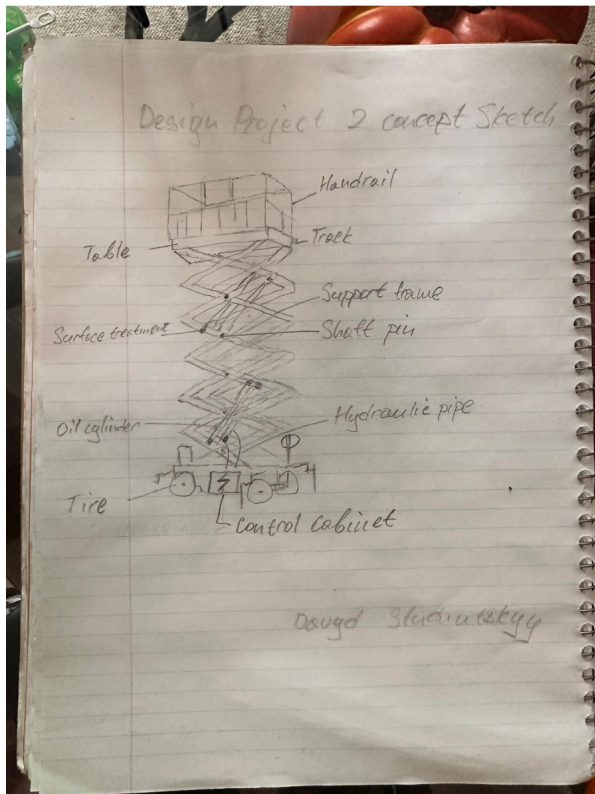 Design Project 2 concept Sketch
Handrail
Table
Track
Support frame
Surface treatment
Shaft pin
Oil cylinder
Hydraulic pipe
Tire
Control cabinet